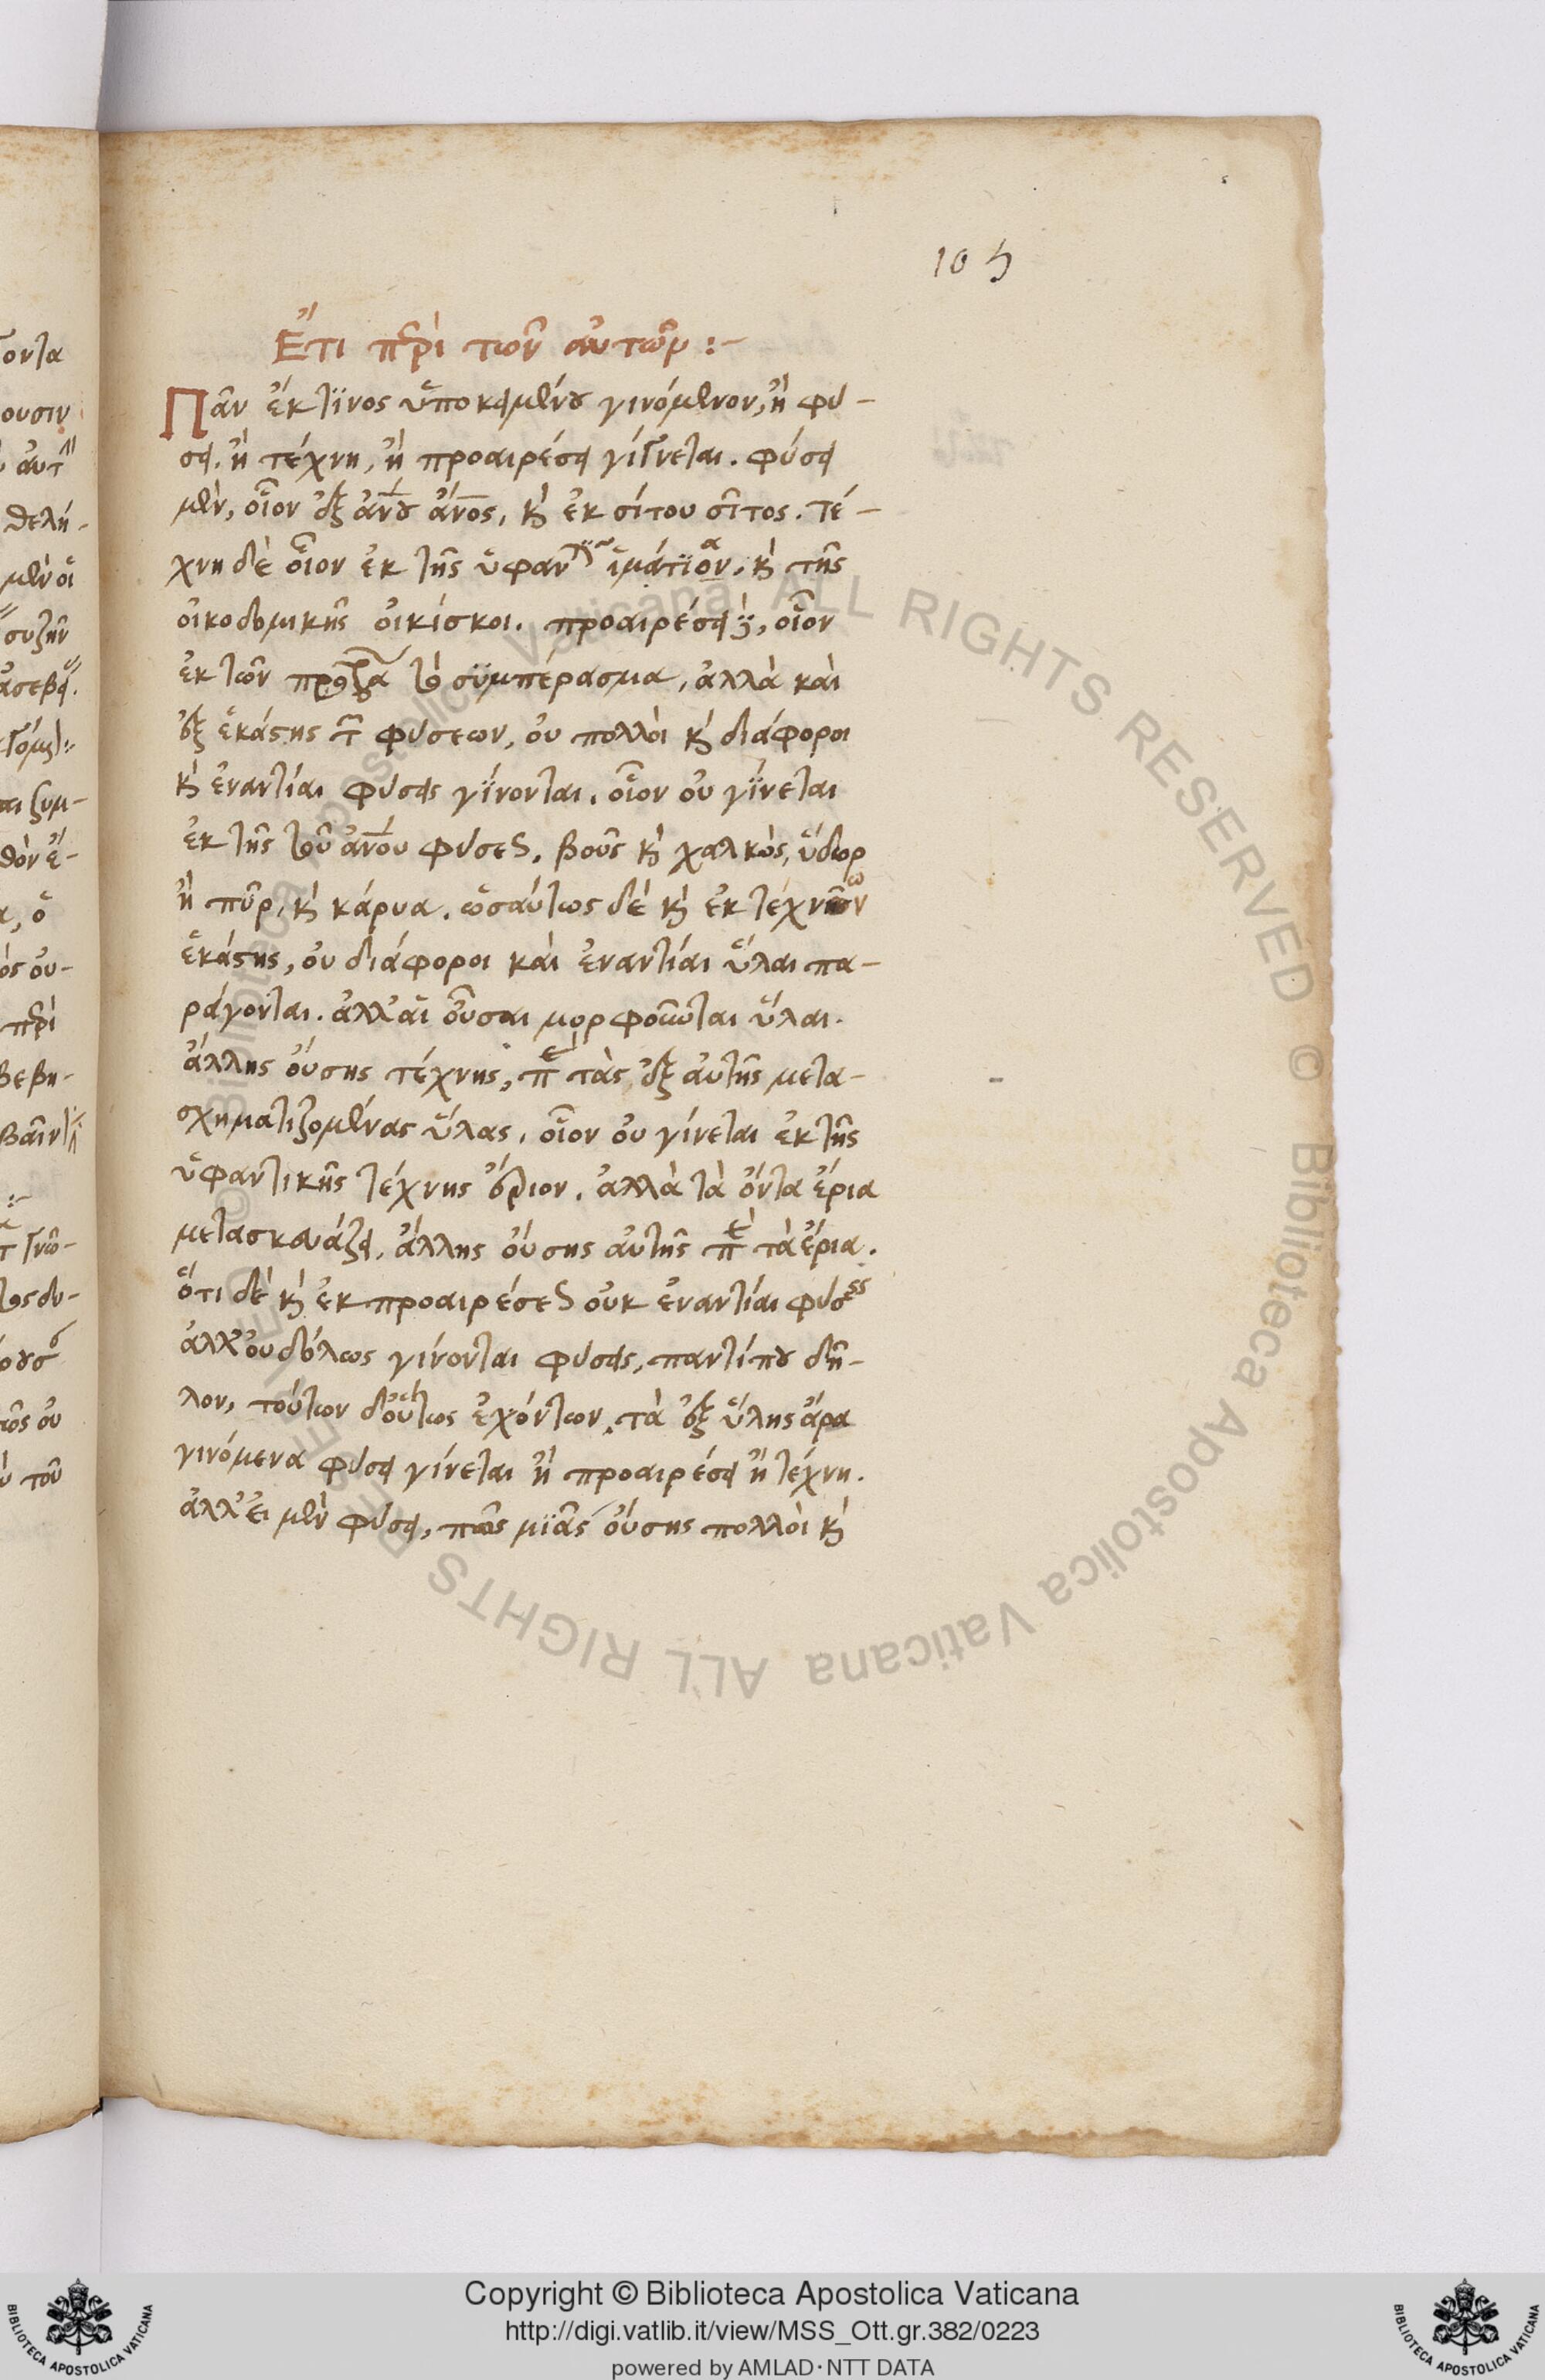 105
Ἔτι περὶ τῶν αὐτῶν :-
Πᾶν ἔκ τϊνος ὑποκειμένου γινόμενον, ἢ φύ-
σει. ἢ τέχνη, ἢ προαιρέσει γίγνεται. φύσει
μὲν, οἷον ἐξ ἀνου ἄνος, κὶ ἐκ σίτου σῖτος. τέ-
χνη δὲ οἷον ἐκ τῆς ὑφαντϊκῆς ἱμάτϊον, κὶ τῆς
οἰκοδομικῆς οἰκίσκοι. προαιρέσει δὲ, οἷον
ἐκ τῶν τὸ σϋμπέρασμα, ἀλλὰ καὶ
ἐξ ἑκάστης τῶν φύσεων, οὐ πολλοὶ κὶ διάφοροι
κὶ ἐναντίαι φύσεις γίνονται. οἷον οὐ γίνεται
ἐκ τῆς τοῦ ἀνου φύσεως, βοῦς κὶ χαλκὸς, ὕδωρ
ἢ πῦρ, κὶ κάρυα. ὡσαύτως δὲ κὶ ἐκ τεχνῶν
ἑκάστης, οὐ διάφοροι καὶ ἐναντίαι ὗλαι πα-
ράγονται. ἀλλ' αἱ οὖσαι μορφοῦνται ὗλαι.
ἄλλης οὔσης τέχνης, παρὰ τὰς ἐξ αὐτῆς μετα-
σχηματιζομένας ὕλας. οἷον οὐ γίνεται ἐκ τῆς
ὑφαντικῆς τέχνης ἔριον. ἀλλὰ τὰ ὄντα ἔρια
μετασκευάζει, ἄλλης οὔσης αὐτῆς παρὰ τὰ ἔρια.
ὅτι δὲ κὶ ἐκ προαιρέσεως οὐκ ἐναντίαι φύσεις
ἀλλ' οὐδόλως γίνονται φύσεις, παντί που δῆ-
λον, τούτων δ' οὕτως ἐχόντων, τὰ ἐξ ὕλης ἄρα
γινόμενα φύσει γίνεται ἢ προαιρέσει ἢ τέχνη.
ἀλλ' εἰ μὲν φύσει, πῶς μϊᾶς οὔσης πολλοὶ κὶ
Copyright © Biblioteca Apostolica Vaticana
http://digi.vatlib.it/view/MSS_Ott.gr.382/0223
powered by AMLAD·NTT DATA